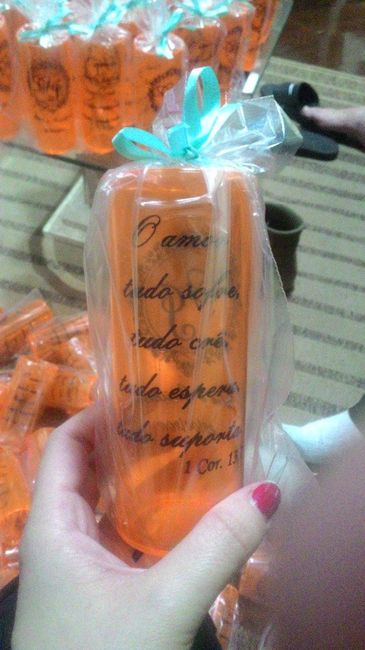 O amor
tudo sofre,
tudo crê,
tudo espera,
tudo suporta.
1 Cor. 13